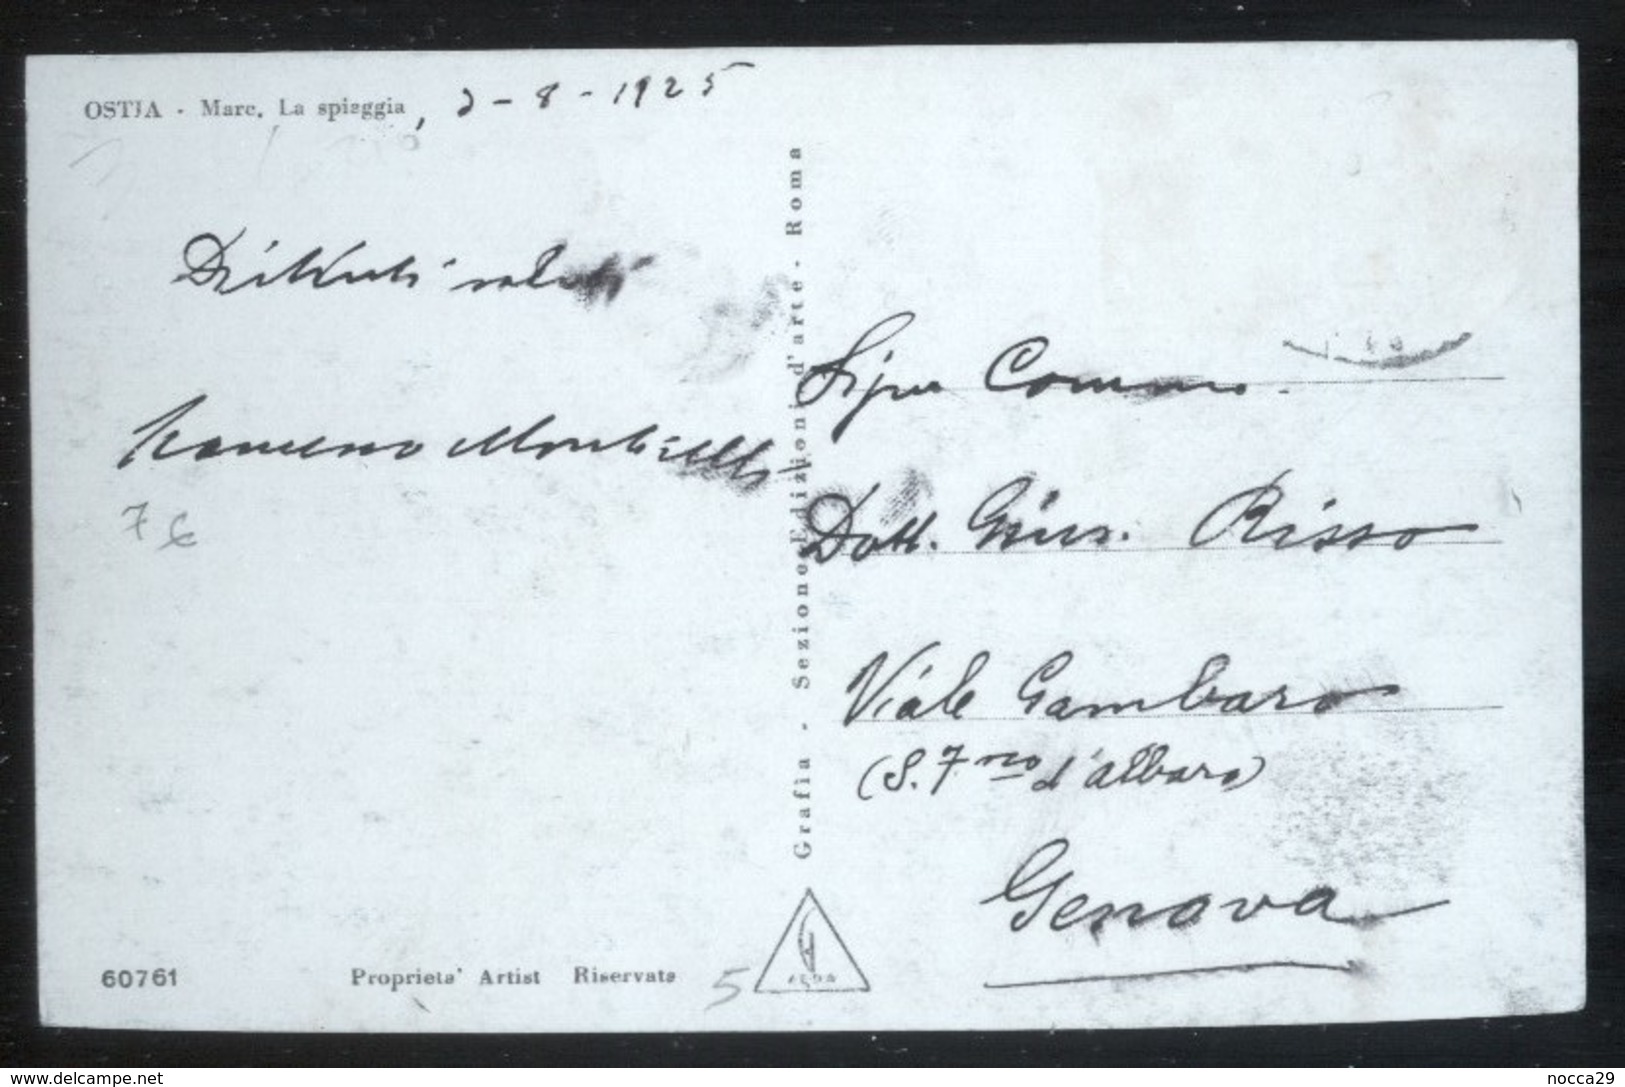 OSTIA - Mare. La spiaggia, 2-8-1925
Distinti saluti
Francesco Monticelli
7 6
Grafia - Sezione Edizioni d'arte - Roma
Signor Comm.
Dott. Gius. Risso
Viale Gambaro
(S. Fsco d'Albaro)
Genova
60761
Proprieta' Artist Riservata
5
www.delcampe.net
nocca29